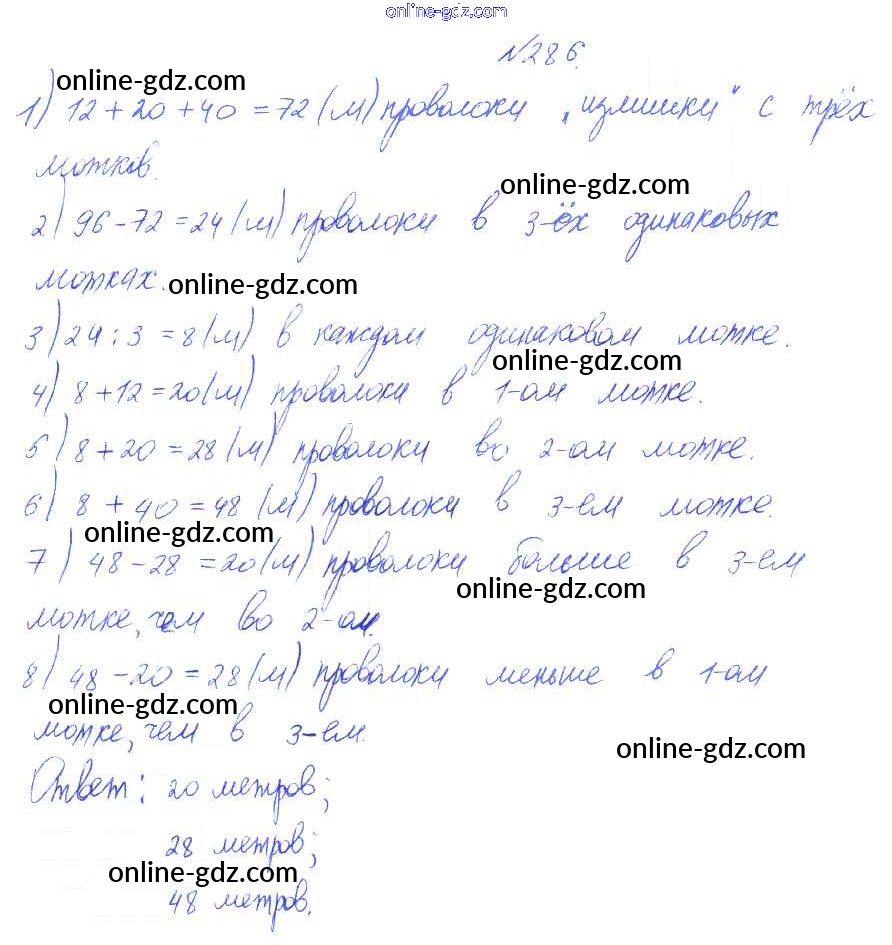 online-gdz.com
№286.
online-gdz.com
1) 12 + 20 + 40 = 72 (м) проволоки „излишки" с трёх
мотков.
online-gdz.com
2) 96 - 72 = 24 (м) проволоки в 3-ёх одинаковых
мотках.
online-gdz.com
3) 24 : 3 = 8 (м) в каждом одинаковом мотке.
online-gdz.com
4) 8 + 12 = 20 (м) проволоки в 1-ом мотке.
5) 8 + 20 = 28 (м) проволоки во 2-ом мотке.
6) 8 + 40 = 48 (м) проволоки в 3-ем мотке.
online-gdz.com
7) 48 - 28 = 20 (м) проволоки больше в 3-ем
online-gdz.com
мотке, чем во 2-ом.
8) 48 - 20 = 28 (м) проволоки меньше в 1-ом
online-gdz.com
мотке, чем в 3-ем.
online-gdz.com
Ответ: 20 метров;
28 метров;
online-gdz.com
48 метров.